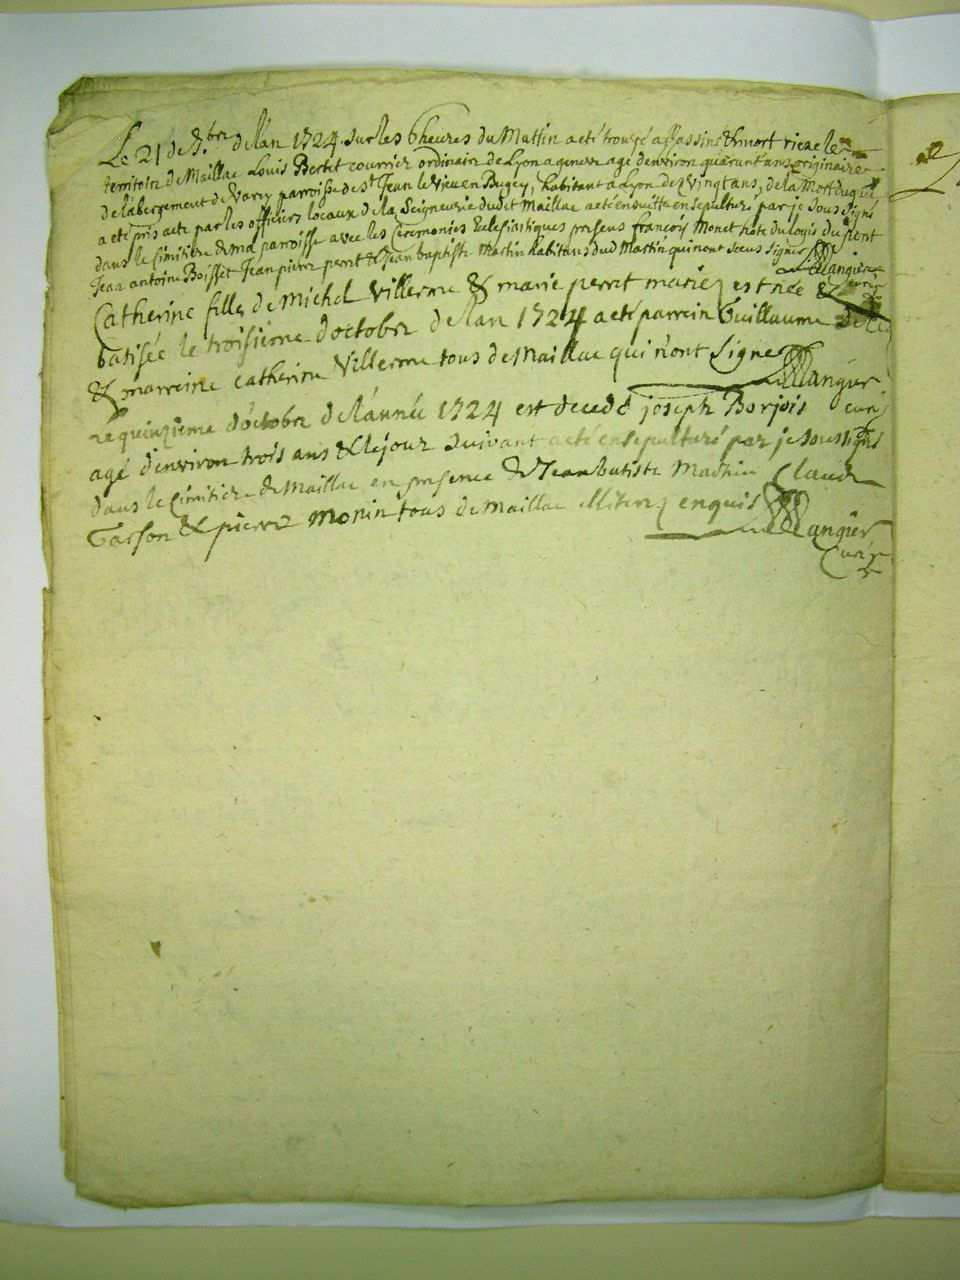 Le 21 de 7.bre de lán 1724 sur les 6 heures du Mattin a eté trouvé assassiné & mort riere le
territoire de Maillac Louis Bertet courrier ordinaire de Lyon a geneve agé denviron quarant ans originaire
de lábergement de Varey parroisse de st Jean le Vieu en Bugey, habitant a Lyon de vingt ans, de la mort duquel
a eté pris acte par les officiers locaux de la Seigneurie dudit Maillac a eté ensuitte ensepulturé par je sous signé
dans le Cimitiere de ma parroisse avec les Ceremonies Eclesiastiques presens françois Monet hôte du logis du
Jean antoine Boisset Jean pierre perret & Jean baptiste Martin habitans dud Mattin qui n'ont sceus signer Mangier
Catherine fille de Michel Villerme & marie perrat mariez est née &
batisée le troisieme d'octobre de lan 1724 a eté parrein Guillaume
& marreine catherine Villerme tous de Maillac qui n'ont signe Mangier
ne quinzieme d'octobre de l'année 1724 est decedé joseph Borjois curé
agé d'environ trois ans & le jour suivant a eté ensepulturé par je soussigné
dans le Cimitiere de Maillac en presence de Jean batiste Mathieu Claude
& pierre monin tous de maillac illiterez enquis Mangier
Curé